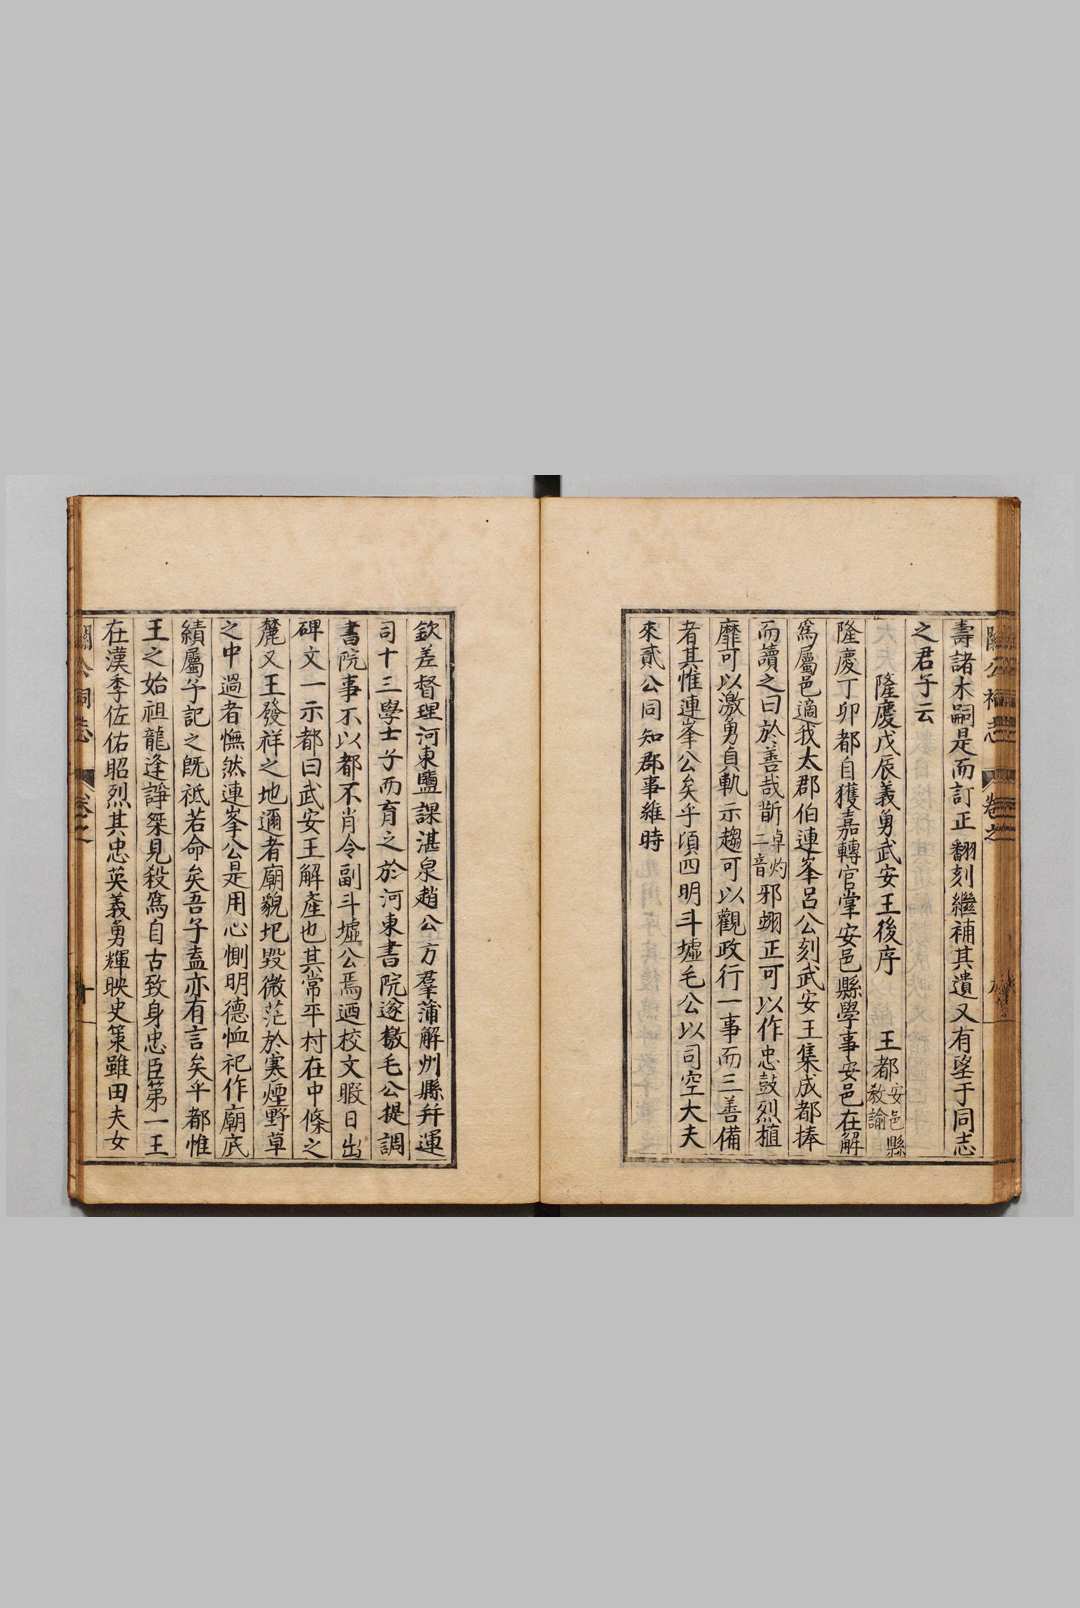 壽諸木嗣是而訂正翻刻繼補其遺又有望于同志
之君子云
隆慶戊辰義勇武安王後序　王都安邑縣教諭
隆慶丁卯都自獲嘉轉官掌安邑縣學事安邑在解
為屬邑適我太郡伯連峯呂公刻武安王集成都捧
而讀之曰於善哉斮卓灼二音邪翊正可以作忠鼓烈植
靡可以激勇貞軌示趨可以觀政行一事而三善備
者其惟連峯公矣乎頃四明斗墟毛公以司空大夫
來貳公同知郡事維時
欽差督理河東鹽課湛泉趙公方羣蒲解州縣幷運
司十三學士子而育之於河東書院遂檄毛公提調
書院事不以都不肖令副斗墟公焉迺校文暇日出
碑文一示都曰武安王解產也其常平村在中條之
麓又王發祥之地邇者廟貌圯毀微茫於寒煙野草
之中過者憮然連峯公是用心惻明德恤祀作廟底
績屬予記之既祗若命矣吾子盍亦有言矣乎都惟
王之始祖龍逢諍桀見殺為自古致身忠臣第一王
在漢季佐佑昭烈其忠英義勇輝映史策雖田夫女
關公祠志　卷之　十